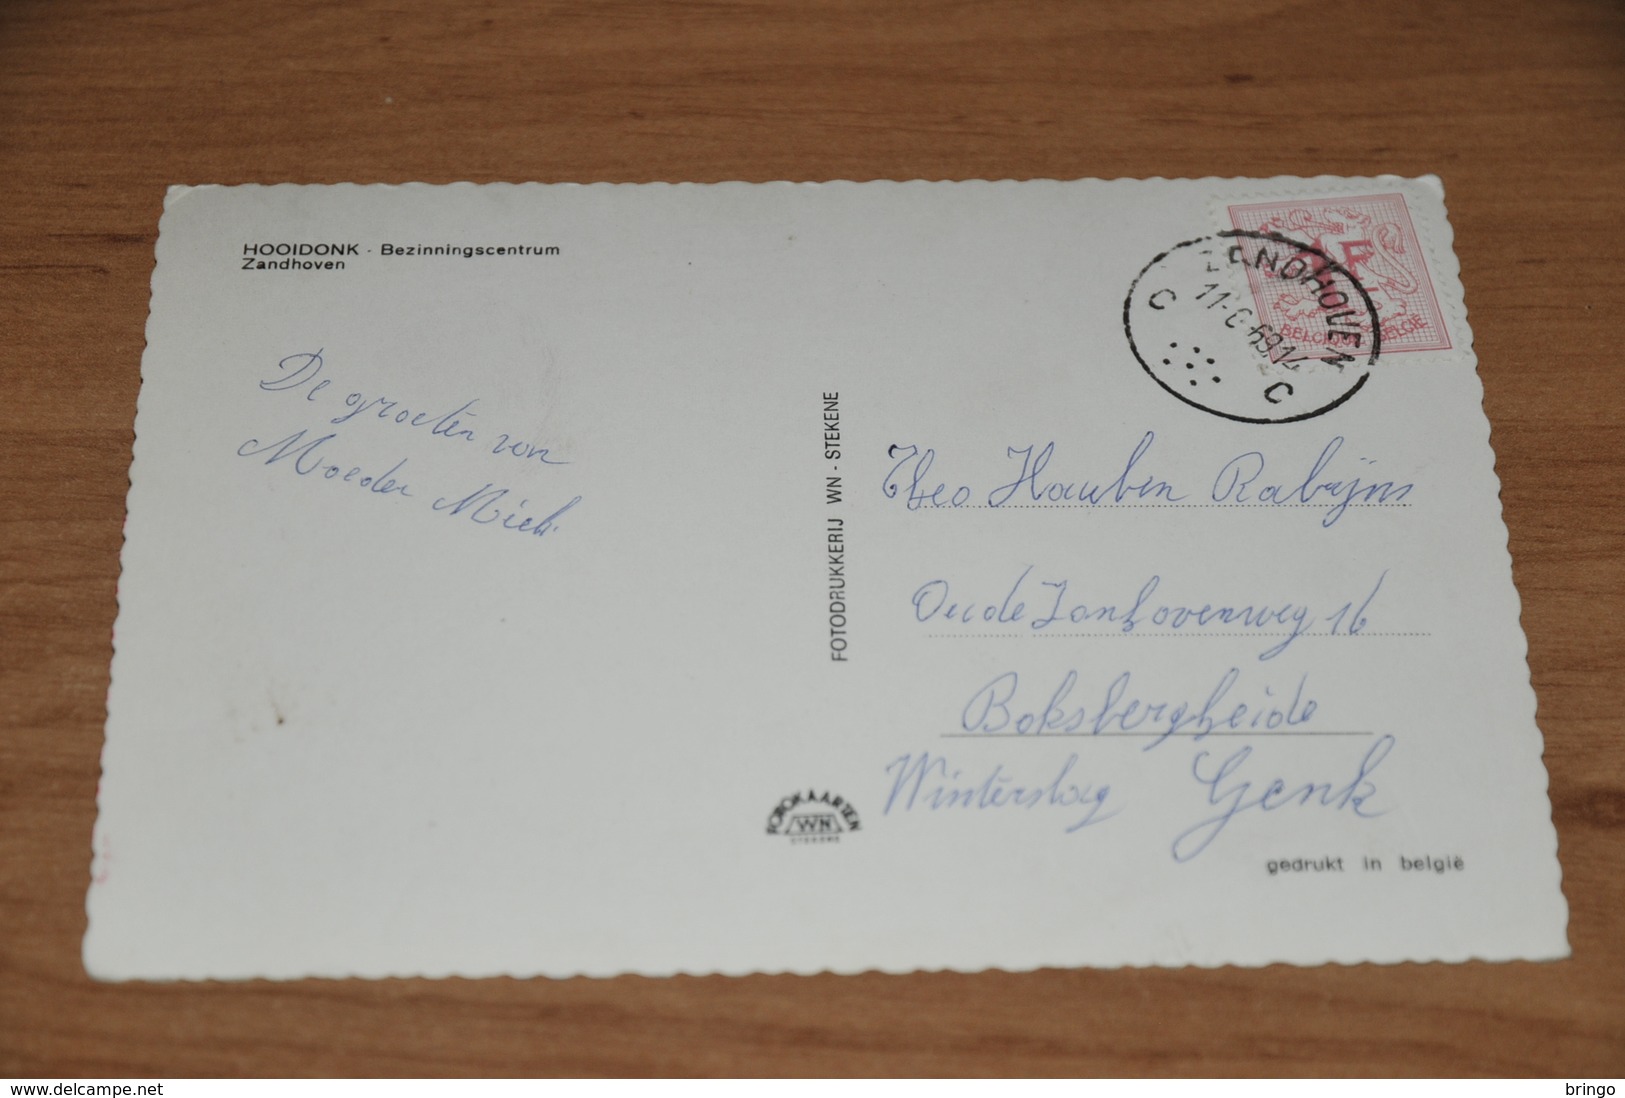 HOOIDONK - Bezinningscentrum
Zandhoven
De groeten van
Moeder Mich.
FOTODRUKKERIJ WN - STEKENE
FOTOKAARTEN
WN
STEKENE
ZENDHOVEN
11-
69 14
C C
BELGIQUE BELGIE
Theo Hauben Rabijns
Oude Zonhovenweg 16
Boksbergheide
Winterslag Genk
gedrukt in belgië
www.delcampe.net
bringo